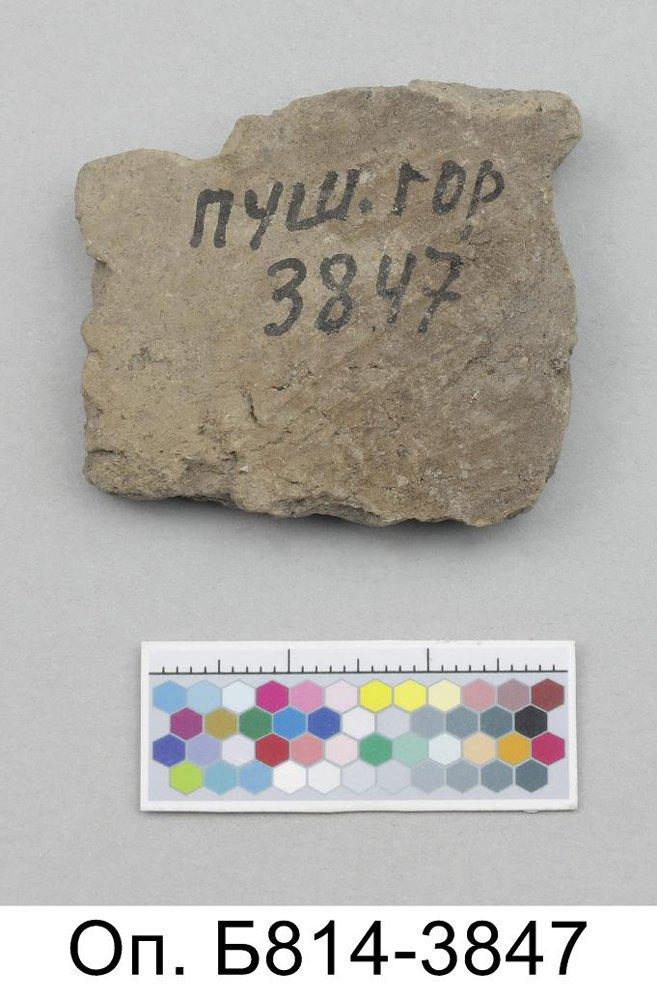 пуш. гор
3847
Оп. Б814-3847